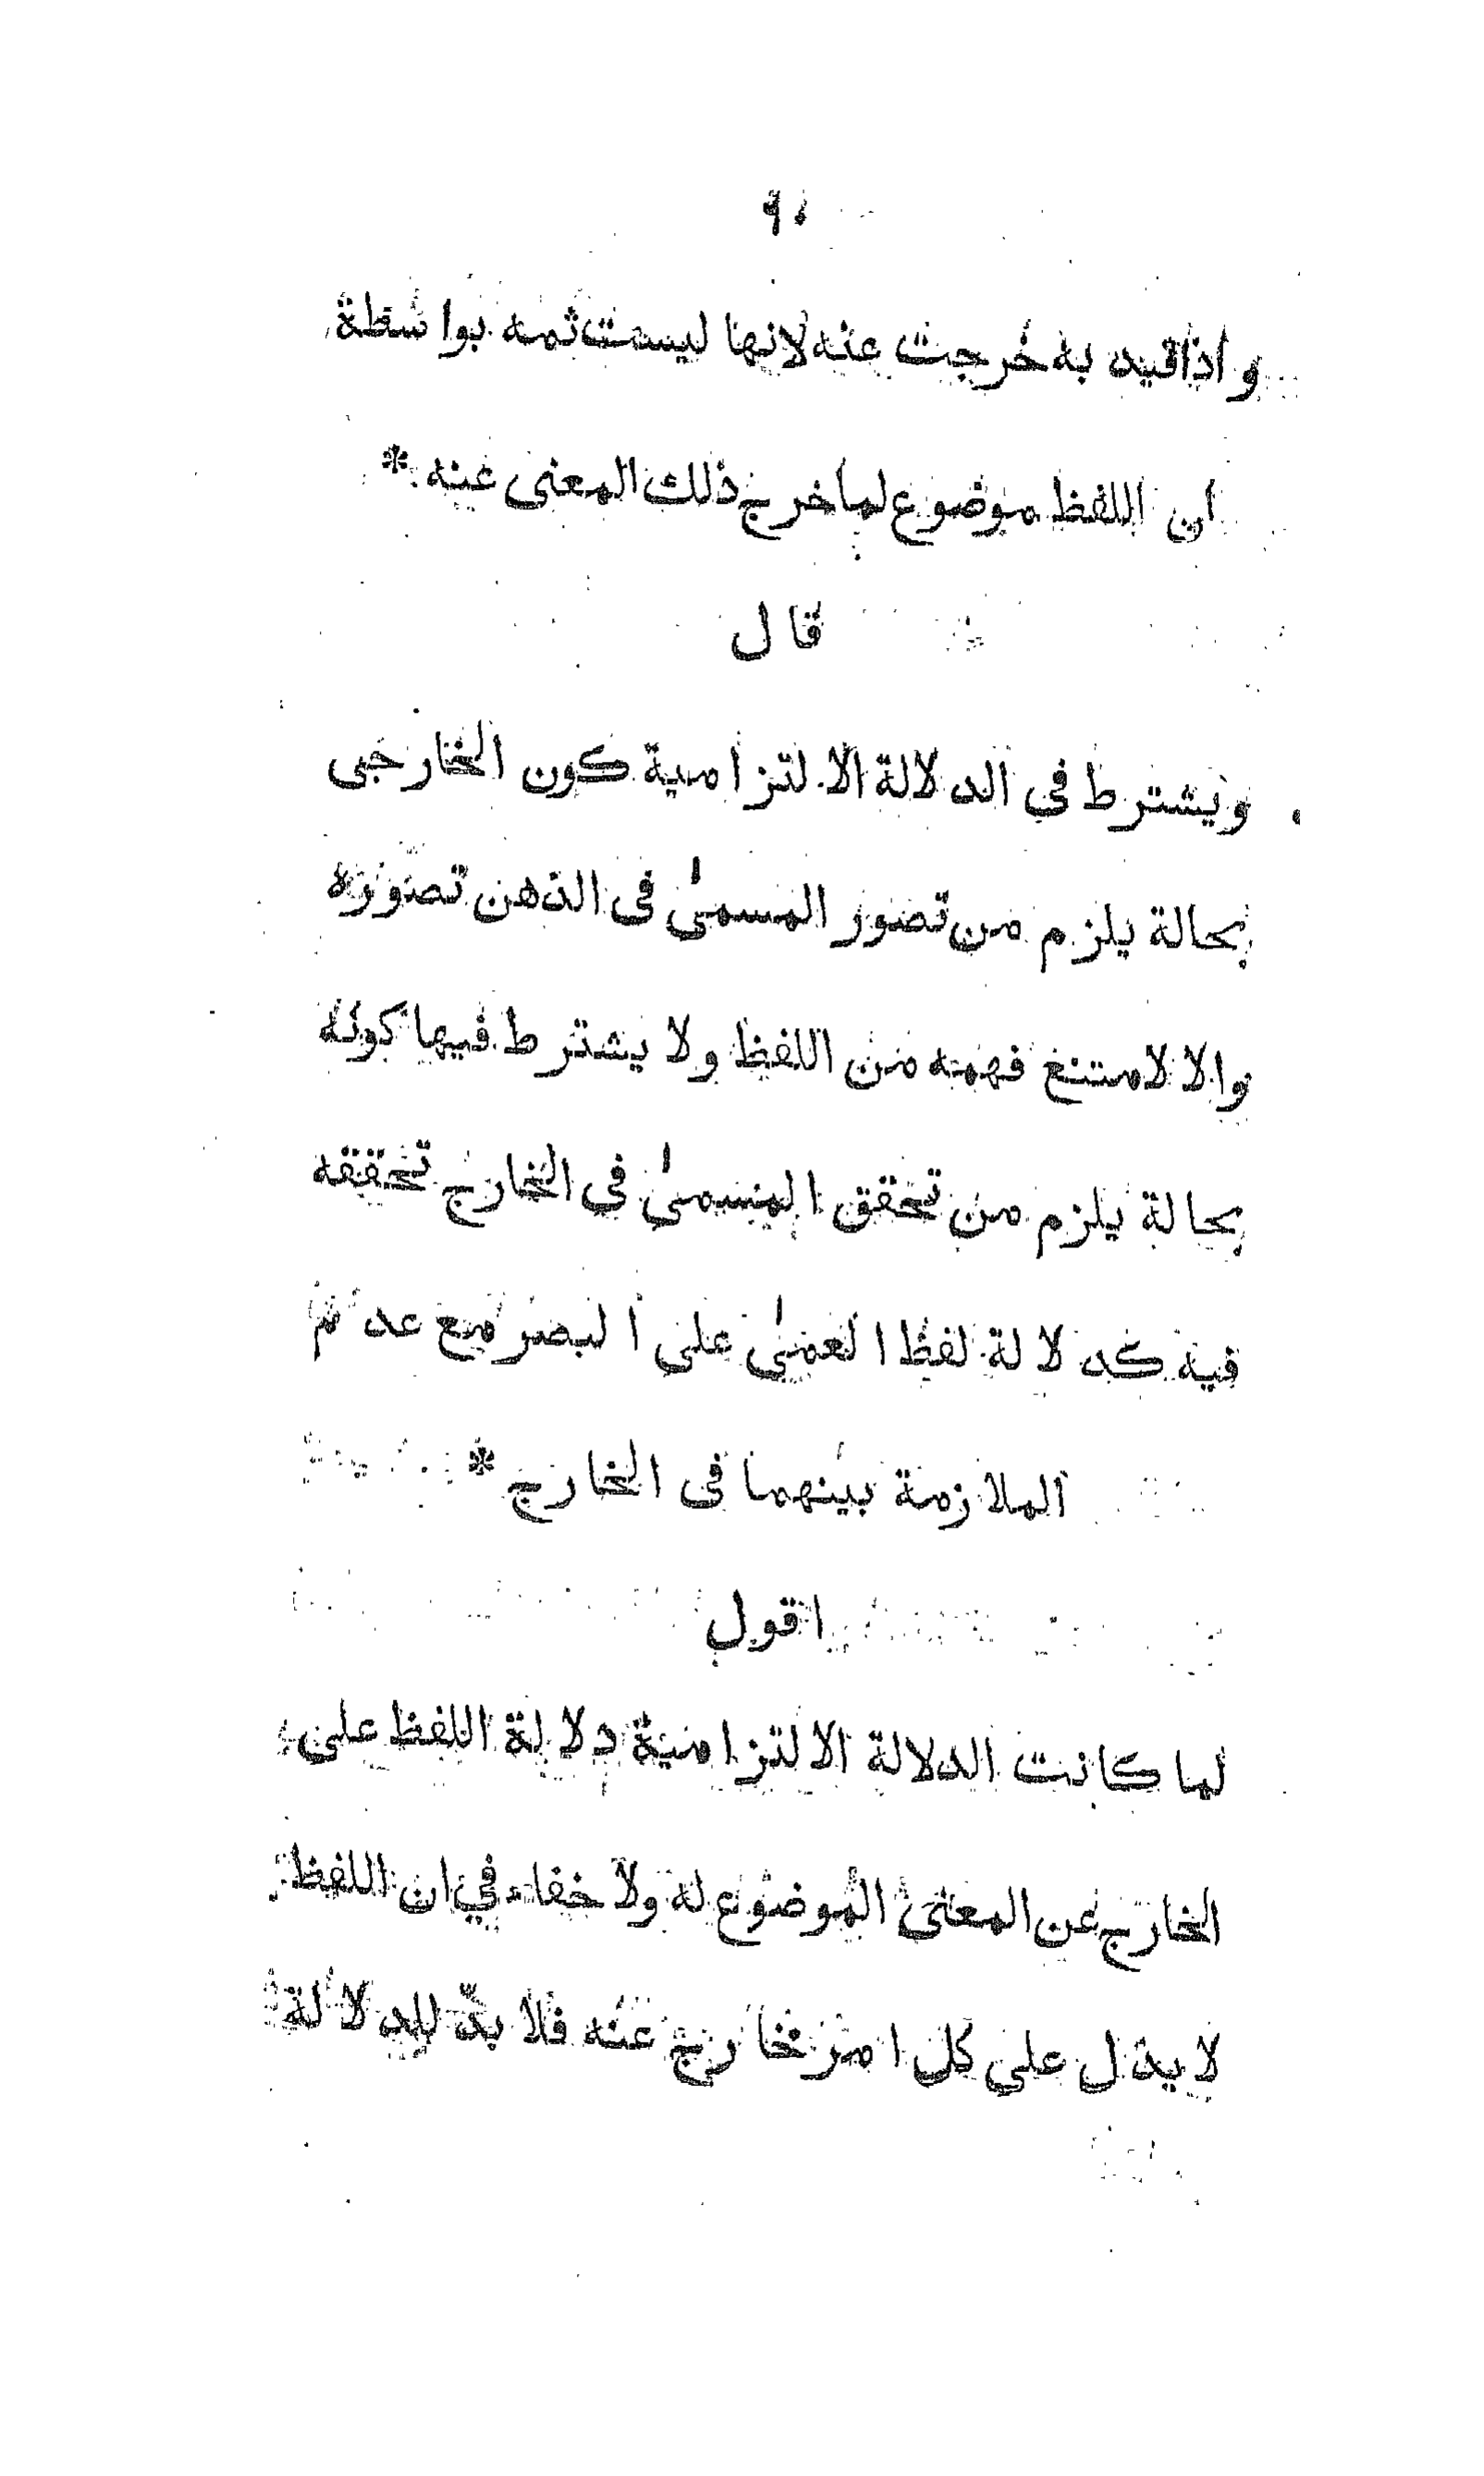 واذاقيد به خرجت عنه لانها ليست ثمه بواسطة
ان اللفظ موضوع لما خرج ذلك المعنى عنه *
قال
ويشترط في الدلالة الالتزامية كون الخارجى
بحالة يلزم من تصور المسمى فى الذهن تصوره
والا لامتنع فهمه من اللفظ ولا يشترط فيها كونه
بحالة يلزم من تحقق المسمى في الخارج تحققه
فيه كدلالة لفظ العمى على البصر مع عدم
الملازمة بينهما فى الخارج *
اقول
لما كانت الدلالة الالتزامية دلالة اللفظ على
الخارج عن المعنى الموضوع له ولا خفاء في ان اللفظ
لا يدل على كل امر خارج عنه فلا بدّ للدلالة